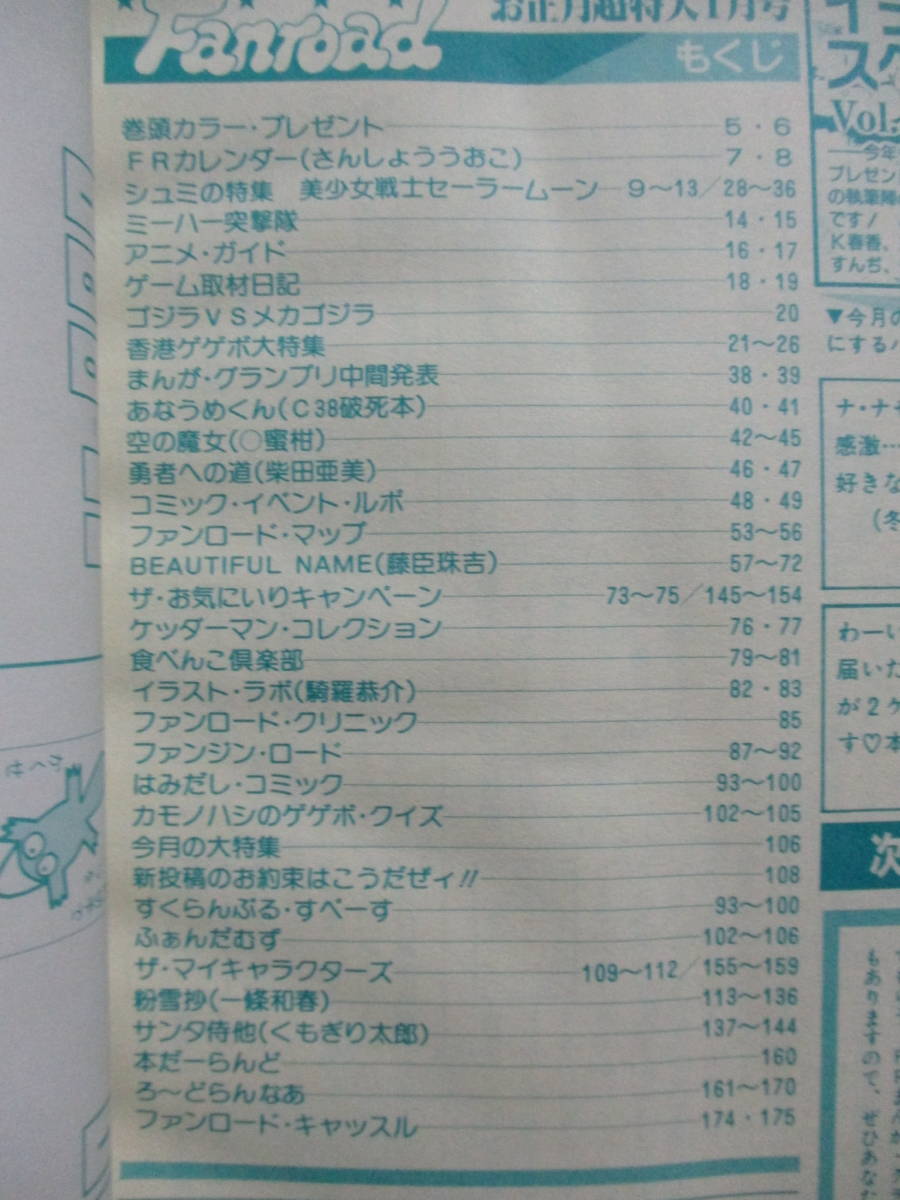 Fanroad
お正月超特大1月号
もくじ
巻頭カラー・プレゼント 5・6
FRカレンダー(さんしょううおこ) 7・8
シュミの特集 美少女戦士セーラームーン 9〜13/28〜36
ミーハー突撃隊 14・15
アニメ・ガイド 16・17
ゲーム取材日記 18・19
ゴジラVSメカゴジラ 20
香港ゲゲボ大特集 21〜26
まんが・グランプリ中間発表 38・39
あなうめくん(C38破死本) 40・41
空の魔女(○蜜柑) 42〜45
勇者への道(柴田亜美) 46・47
コミック・イベント・ルポ 48・49
ファンロード・マップ 53〜56
BEAUTIFUL NAME(藤臣珠吉) 57〜72
ザ・お気にいりキャンペーン 73〜75/145〜154
ケッダーマン・コレクション 76・77
食べんこ倶楽部 79〜81
イラスト・ラボ(騎羅恭介) 82・83
ファンロード・クリニック 85
ファンジン・ロード 87〜92
はみだし・コミック 93〜100
カモノハシのゲゲボ・クイズ 102〜105
今月の大特集 106
新投稿のお約束はこうだぜィ!! 108
すくらんぶる・すぺーす 93〜100
ふぁんだむず 102〜106
ザ・マイキャラクターズ 109〜112/155〜159
粉雪抄(一條和春) 113〜136
サンタ侍他(くもぎり太郎) 137〜144
本だーらんど 160
ろ〜どらんなあ 161〜170
ファンロード・キャッスル 174・175
Vol.
今年
プレゼン
の執筆陣
です!
K春香、
すんぢ、
▼今月の
にする
ナ・ナ
感激…
好きな
(冬
わーい
届いた
が2ケ
す♡本
次
もありますので、ぜひあな